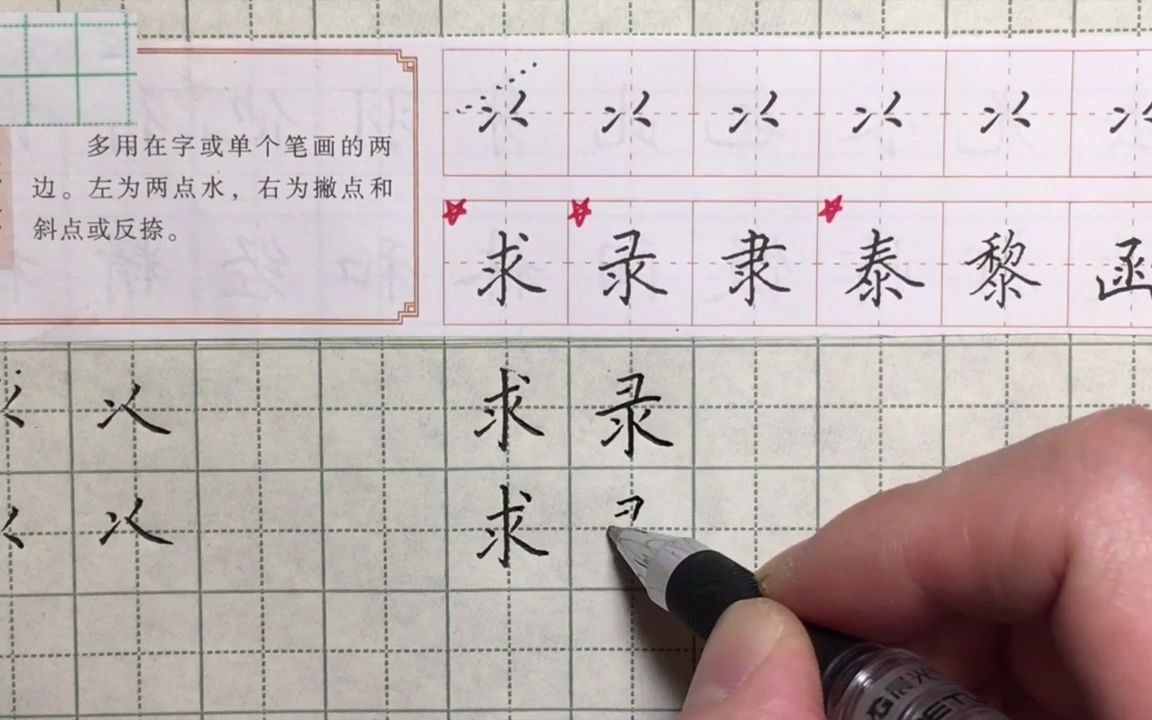 多用在字或单个笔画的两
边。左为两点水，右为撇点和
斜点或反捺。
求录隶泰黎函
求录
求
晨光